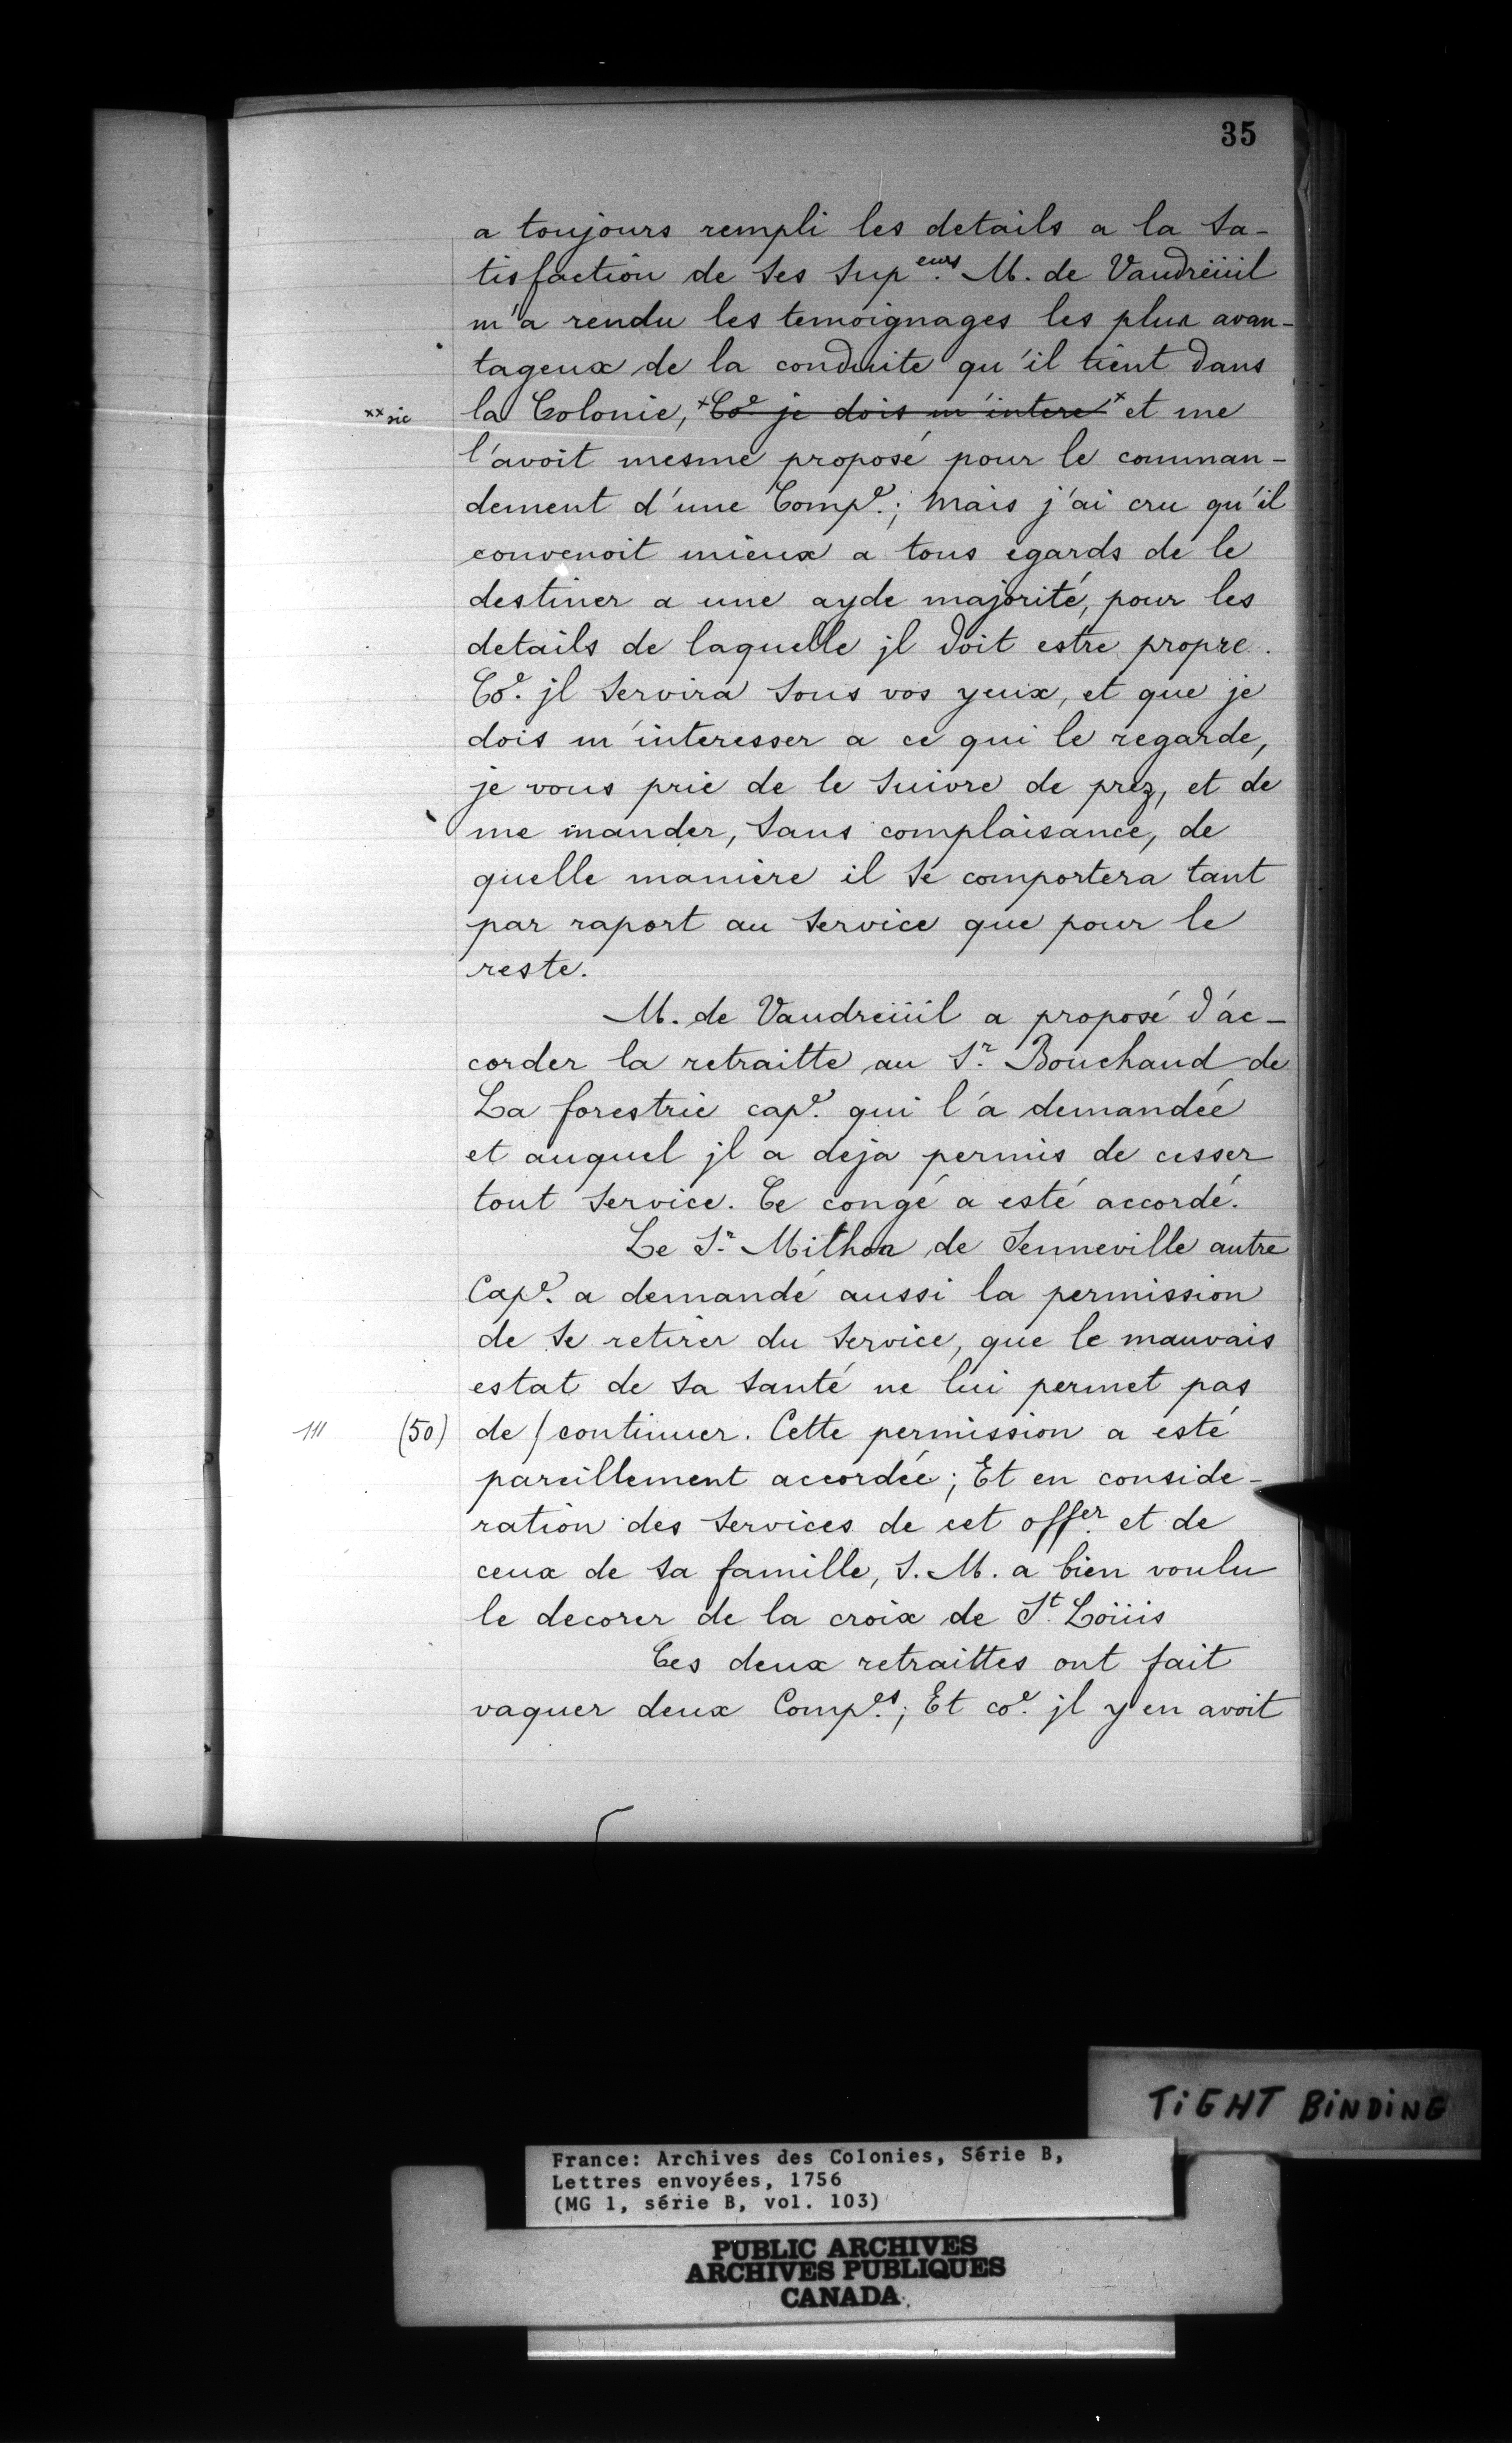 35
a toujours rempli les details a la sa-
tisfaction de ses sup.eurs M. de Vaudreüil
m'a rendu les temoignages les plus avan-
tageux de la conduite qu'il tient dans
xx sic la Colonie, x Coe je dois m'intere x et me
l'avoit mesme proposé pour le comman-
dement d'une Compe.; mais j'ai cru qu'il
convenoit mieux a tous egards de le
destiner a une ayde majorité, pour les
details de laquelle jl doit estre propre.
Coe. jl servira sous vos yeux, et que je
dois m'interesser a ce qui le regarde,
je vous prie de le suivre de prez, et de
me mander, sans complaisance, de
quelle maniere il se comportera tant
par raport au service que pour le
reste.
M. de Vaudreüil a proposé d'ac-
corder la retraitte au Sr. Bouchaud de
La forestrie cape. qui l'a demandée
et auquel jl a deja permis de cesser
tout service. Ce congé a esté accordé.
Le Sr. Mithon de Senneville autre
Cape. a demandé aussi la permission
de se retirer du service, que le mauvais
estat de sa santé ne lui permet pas
(50) de / continuer. Cette permission a esté
pareillement accordée; Et en conside-
ration des services de cet offer. et de
ceux de sa famille, S. M. a bien voulu
le decorer de la croix de St. Loüis
Ces deux retraittes ont fait
vaquer deux Compes.; Et coe. jl y en avoit
TiGHT BiNDiNG
France: Archives des Colonies, Série B,
Lettres envoyées, 1756
(MG 1, série B, vol. 103)
PUBLIC ARCHIVES
ARCHIVES PUBLIQUES
CANADA